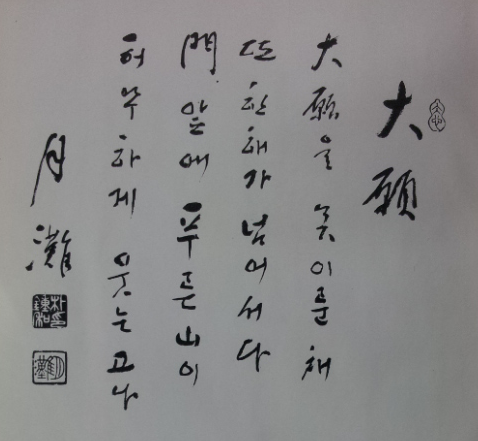 大願
大願을 못이룬 채
또 한해가 넘어서다
門 앞에 푸른 山이
허무하게 웃는고나
月灘
朴印鍾和
月灘